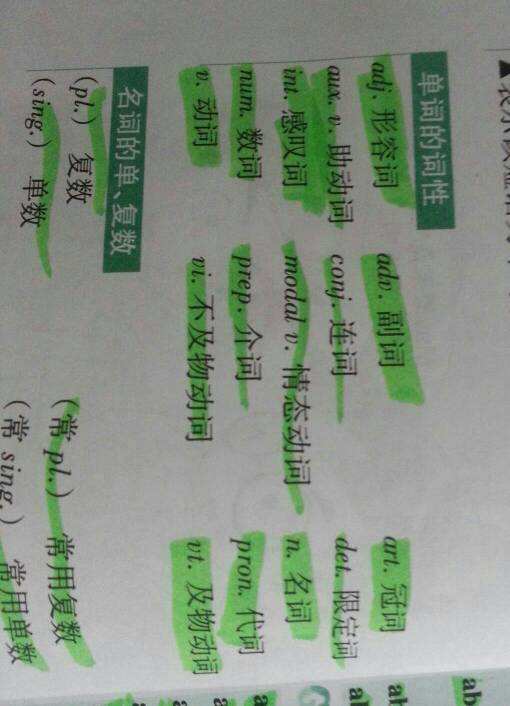 单词的词性
adj. 形容词 adv. 副词 art. 冠词
aux. v. 助动词 conj. 连词 det. 限定词
int. 感叹词 modal v. 情态动词 n. 名词
num. 数词 prep. 介词 pron. 代词
v. 动词 vi. 不及物动词 vt. 及物动词
名词的单、复数
(pl.) 复数 (常 pl.) 常用复数
(sing.) 单数 (常 sing.) 常用单数